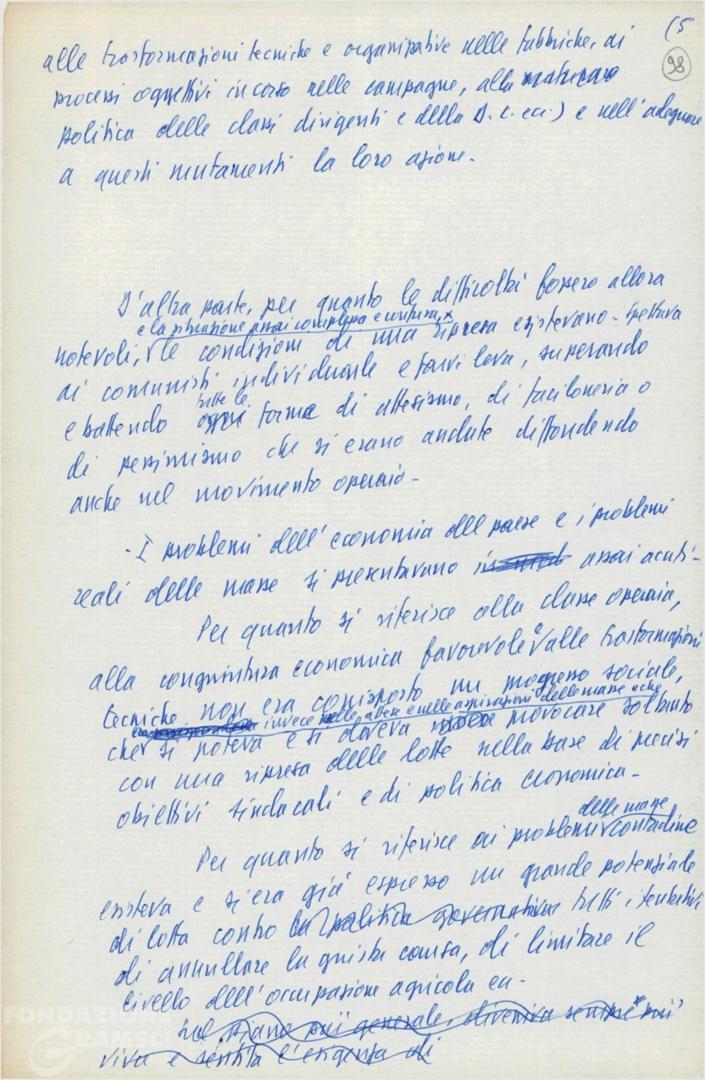 (5
98
alle trasformazioni tecniche e organizzative nelle fabbriche, ai
processi oggettivi in corso nelle campagne, alla
politica delle classi dirigenti e della D.C. ecc.) e nell'adeguare
a questi mutamenti la loro azione.
D'altra parte, per quanto le difficoltà fossero allora
e la situazione assai complessa e confusa,
notevoli, le condizioni di una ripresa esistevano. Spettava
ai comunisti individuarle e farvi leva, superando
tutte le
e battendo ogni forme di attesismo, di faciloneria o
di pessimismo che si erano andate diffondendo
anche nel movimento operaio.
- I problemi dell'economia del paese e i problemi
reali delle masse si presentavano assai acuti.
Per quanto si riferisce alla classe operaia,
alla congiuntura economica favorevole e alle trasformazioni
tecniche non era corrisposto un progresso sociale,
invece nelle attese e nelle aspirazioni delle masse e che
che si poteva e si doveva provocare soltanto
con una ripresa delle lotte sulla base di precisi
obiettivi sindacali e di politica economica.
delle masse
Per quanto si riferisce ai problemi contadine
esisteva e si era già espresso un grande potenziale
di lotta contro la politica governativa tutti i tentativi
di annullare la giusta causa, di limitare il
livello dell'occupazione agricola ecc.
Sul piano più generale, diveniva sempre più
viva e sentita l'esigenza di
FONDAZIONE
GRAMSCI